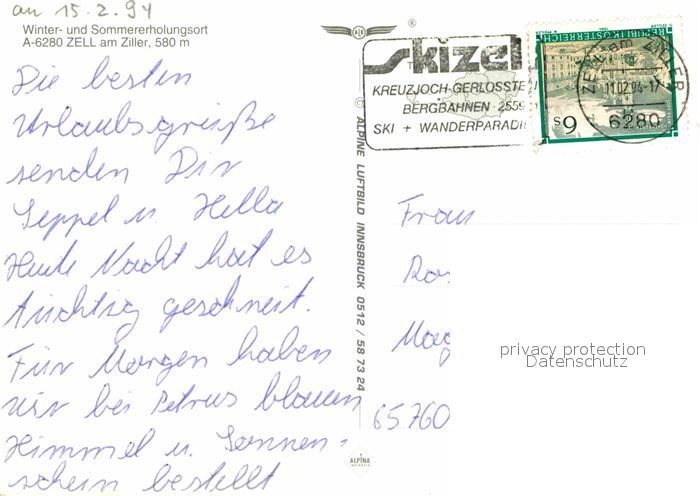 an 15.2.94
Winter- und Sommererholungsort
A-6280 ZELL am Ziller, 580 m
Die besten
Urlaubsgrüße
senden Dir
Seppel u. Hella
Heute Nacht hat es
tüchtig geschneit.
Für Morgen haben
wir bei Petrus blauen
Himmel u. Sonnen-
schein bestellt
ALPINE LUFTBILD INNSBRUCK 0512 / 58 73 24
ALPINA
skizel
KREUZJOCH-GERLOSSTE
BERGBAHNEN · 2559
SKI + WANDERPARADI
REPUBLIK ÖSTERREICH
S 6
ZELL am ZILLER
11.02.94-17
6280
Frau
Ro
Mag
65760
privacy protection
Datenschutz